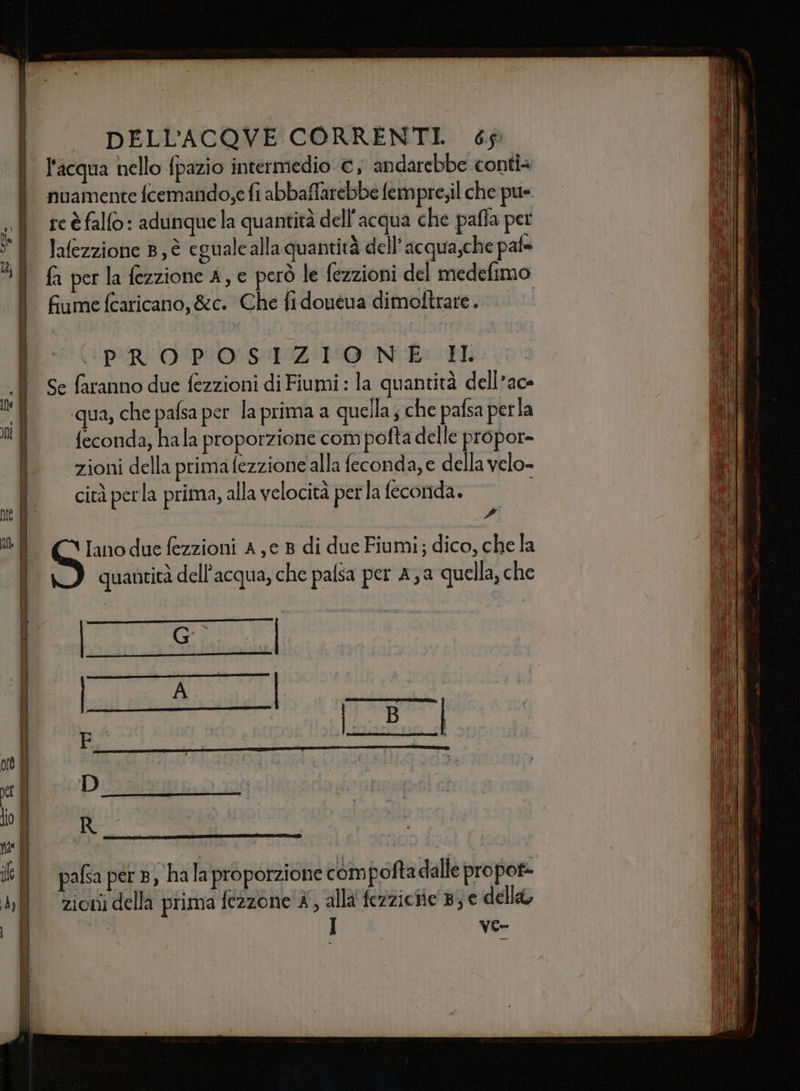 DELL'ACQVE CORRENTI. 65
l'acqua nello ſpazio intermedio C, andarebbe conti-
nuamente ſcemando,e ſi abbaſſarebbe ſempre,il che pu-
re è falſo: adunque la quantità dell'acqua che paſſa per
la ſezzione B, è eguale alla quantità dell'acqua,che paſ-
ſa per la ſezzione A, e però le ſezzioni del medeſimo
fiume ſcaricano, &c. Che ſi doueua dimoſtrare.
PROPOSIZIONE II.
Se ſaranno due ſezzioni di Fiumi: la quantità dell'ac-
qua, che paſsa per la prima a quella, che paſsa per la
ſeconda, ha la proporzione compoſta delle propor-
zioni della prima ſezzione alla ſeconda, e della velo-
cità per la prima, alla velocità per la ſeconda.
SIano due ſezzioni A, e B di due Fiumi; dico, che la
quantità dell'acqua, che paſsa per A, a quella, che
G
A
B
F
D
R
paſsa per B, ha la proporzione compoſta dalle propor-
zioni della prima ſezzone A, alla ſezzione B, e della
I ve-